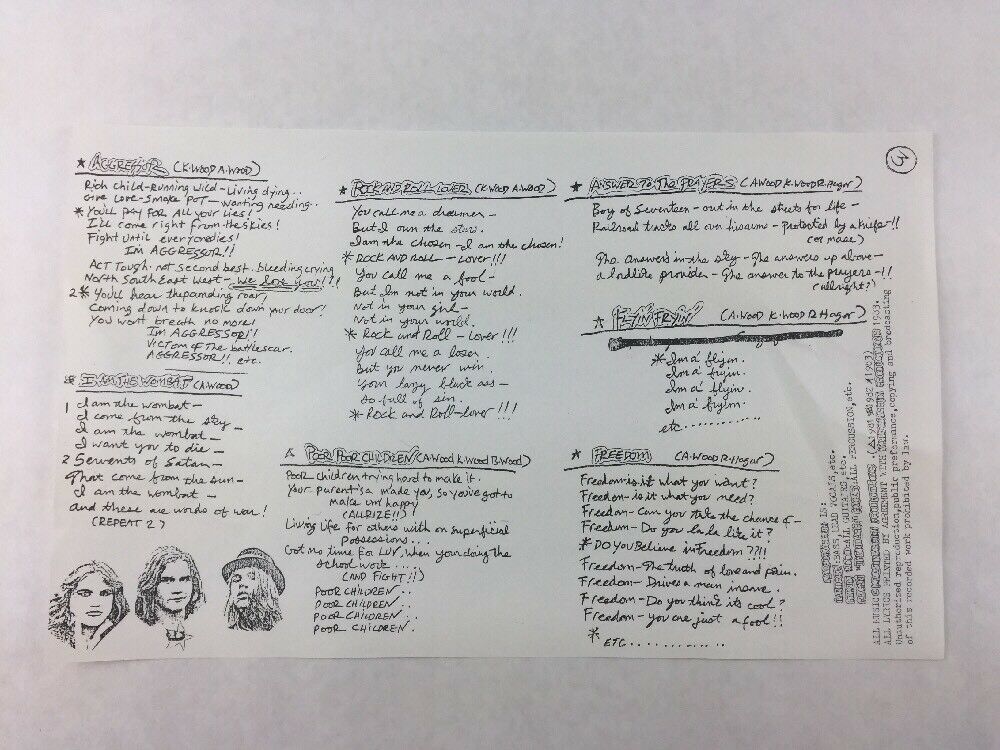 3
* AGGRESSOR (K.WOOD A.WOOD)
Rich Child-Running Wild-Living dying..
Give Love-Smoke POT-wanting needing..
* You'll pay for All your lies!
I'll come right from the skies!
Fight until everyone dies!
IM AGGRESSOR!!
ACT Tough. not Second best. bleeding crying
North South East West-we love you!!!
2 * You'll hear the panding roar!
Coming down to knock down your door!
You wont breath no more!
IM AGGRESSOR!!
VICTOM OF The battlescar.
AGGRESSOR!!. etc.
* I AM THE WOMBAT (A.WOOD)
1 I am the wombat-
I come from the sky-
I am the wombat-
I want you to die-
2 Servents of Satan-
That come from the sun-
I am the wombat-
and these are words of war!
(REPEAT 2)
* ROCK AND ROLL LOVER (K.WOOD A.WOOD)
You call me a dreamer-
But I own the stars.
I am the chosen-I am the chosen!
* ROCK AND ROLL-LOVER!!!
You call me a fool-
But Im not in your world.
Not in your girl-
Not in your world.
* Rock and Roll-Lover!!!
You call me a loser.
But you never win.
Your lazy black ass-
so full of sin.
* Rock and Roll-lover!!!
POOR POOR CHILDREN (A.WOOD K.WOOD B.WOOD)
POOR children trying hard to make it.
Your parent's a made you, so you've got to
make um happy
Living life for others with on superficial
Possessions...
Got no time for LUV, when your doing the
school work....
(AND FIGHT!!)
POOR CHILDREN..
POOR CHILDREN..
POOR CHILDREN..
POOR CHILDREN.
* ANSWER TO THE PRAYERS (A.WOOD K.WOOD R.Hagar)
Boy of Seventeen-out in the streets for life-
Railroad tracks all own
-Protected by a knife!!
(or mace)
The answers in the sky-The answers up above-
a provider-The answer to the prayers-!!
(allright?)
* FLYIN' FRYIN' (A.WOOD K.WOOD R.Hagar)
* Im a' flyin.
Im a' fryin.
Im a' flyin.
Im a' fryin.
etc..........
* FREEDOM (A.WOOD R.Hagar)
Freedom-is it what you want?
Freedom-is it what you need?
Freedom-Can you take the chance of-
Freedom-Do you la la like it?
* DO YOU Believe in Freedom??!!
Freedom-The truth of love and pain.
Freedom-Drives a man insane.
Freedom-Do you think its cool?
Freedom-you are just a fool!!
* ETC............
IS:
BASS, LEAD VOCALS, etc.
ALL GUITARS etc.
ALL PERCUSSION, etc.
ALL MUSIC
ALL LYRICS PRINTED BY AGREEMENT WITH 1983.
Unauthorised reproduction,public preformance,copying and brodcasting
of this recorded work prohibited by law.